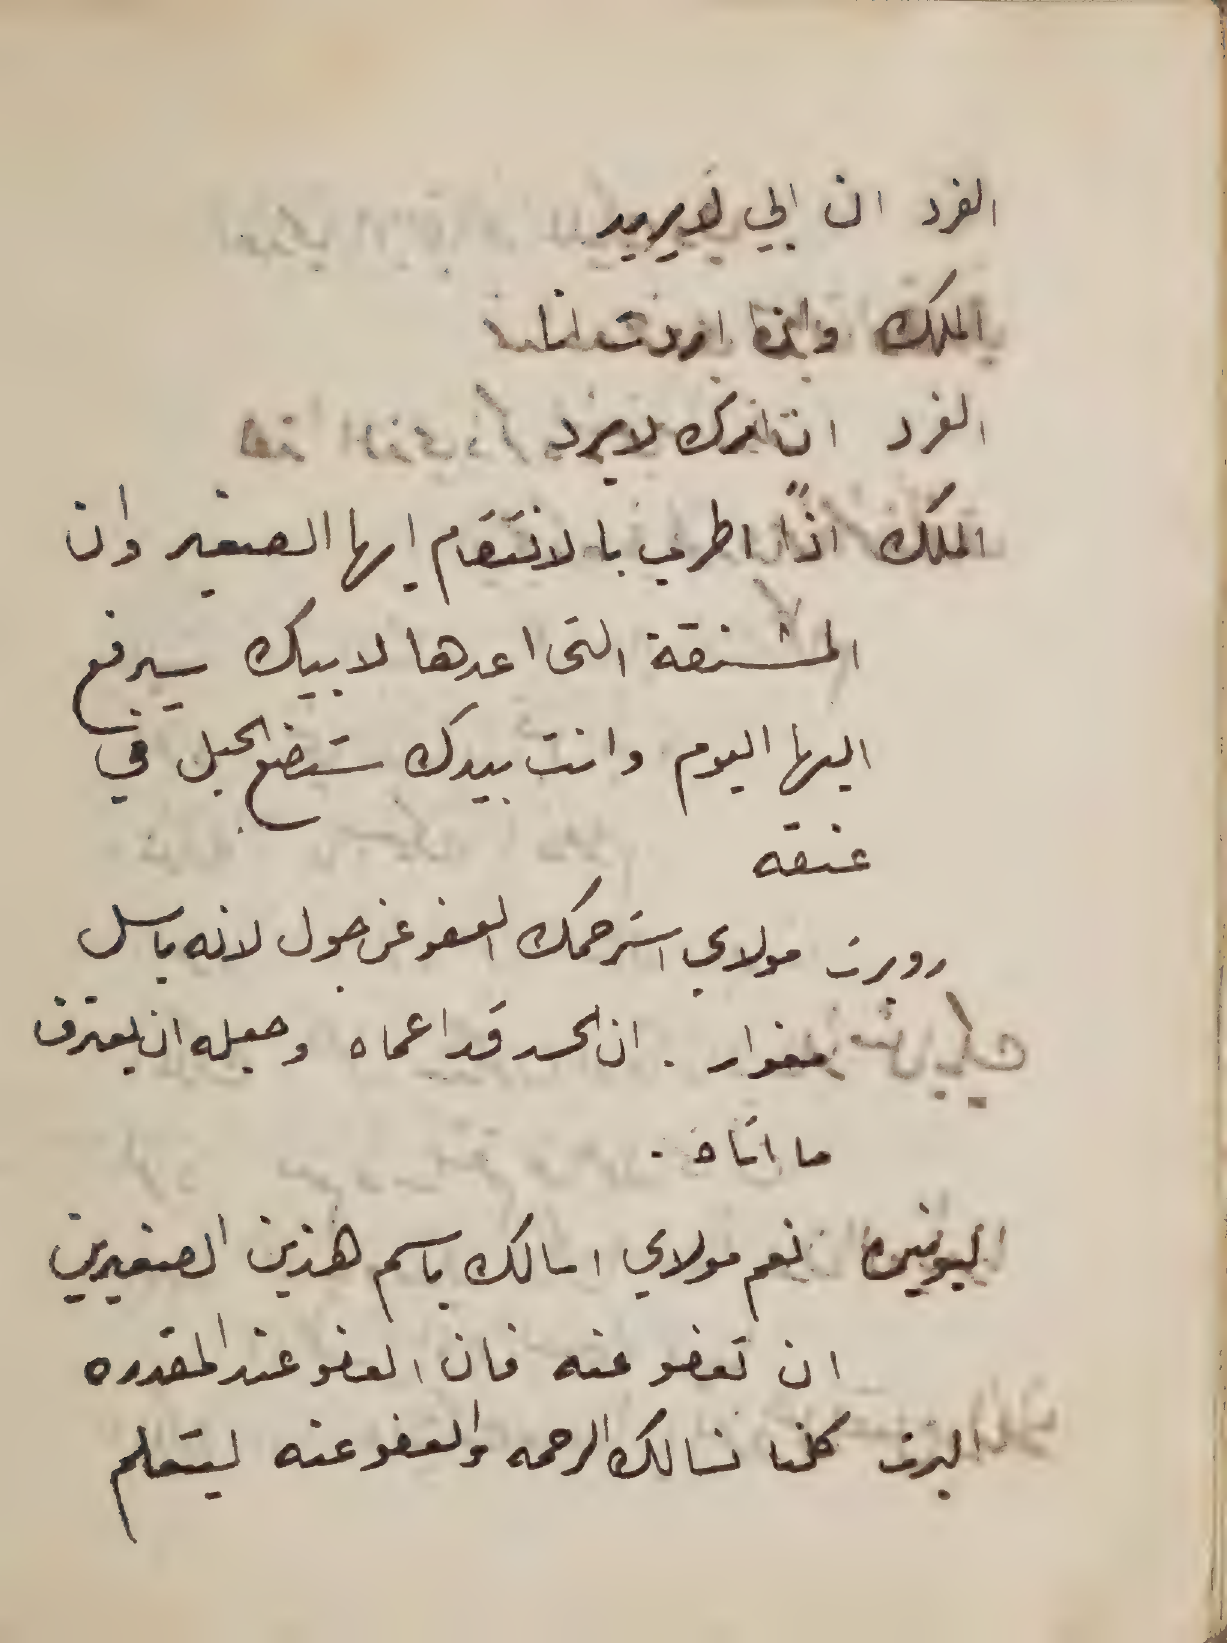 الفرد ان ابي لا يريد
الملك واذا اردت انا
الفرد ان امرك لا يرد
الملك اذاً اطرب بالانتقام ايها الصغير وان
المشنقة التى اعدها لابيك سيرفع
اليها اليوم وانت بيدك ستضع الحبل في
عنقه
روبرت مولاي استرحمك العفو عن جول لانه باسل
مغوار . ان الحسد قد اعماه وجعله ان يقترف
ما اتاه .
اليونوره نعم مولاي اسالك باسم هذين الصغيرين
ان تعفو عنه فان العفو عند المقدره
البرت كلنا نسالك الرحمه والعفو عنه ليتعلم